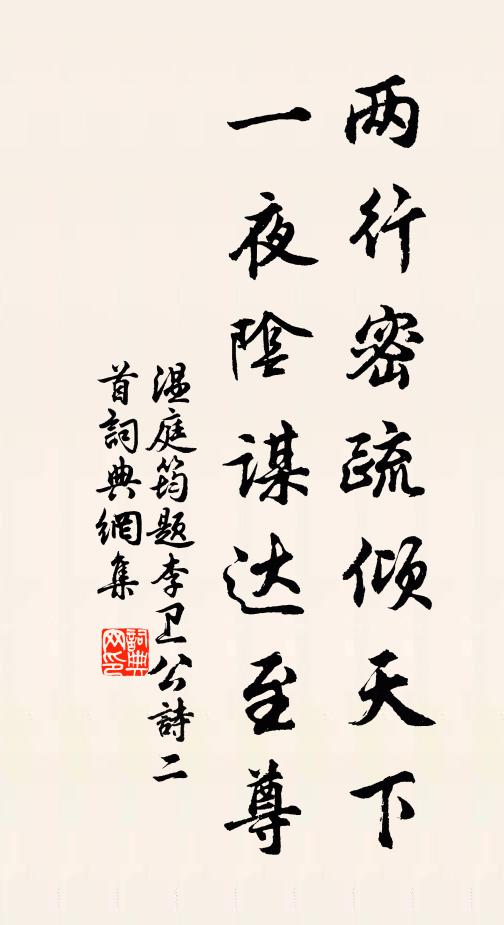 两行密疏倾天下
一夜陰谋达至尊
温庭筠题李卫公詩二
首詞典網集
詞典
网印